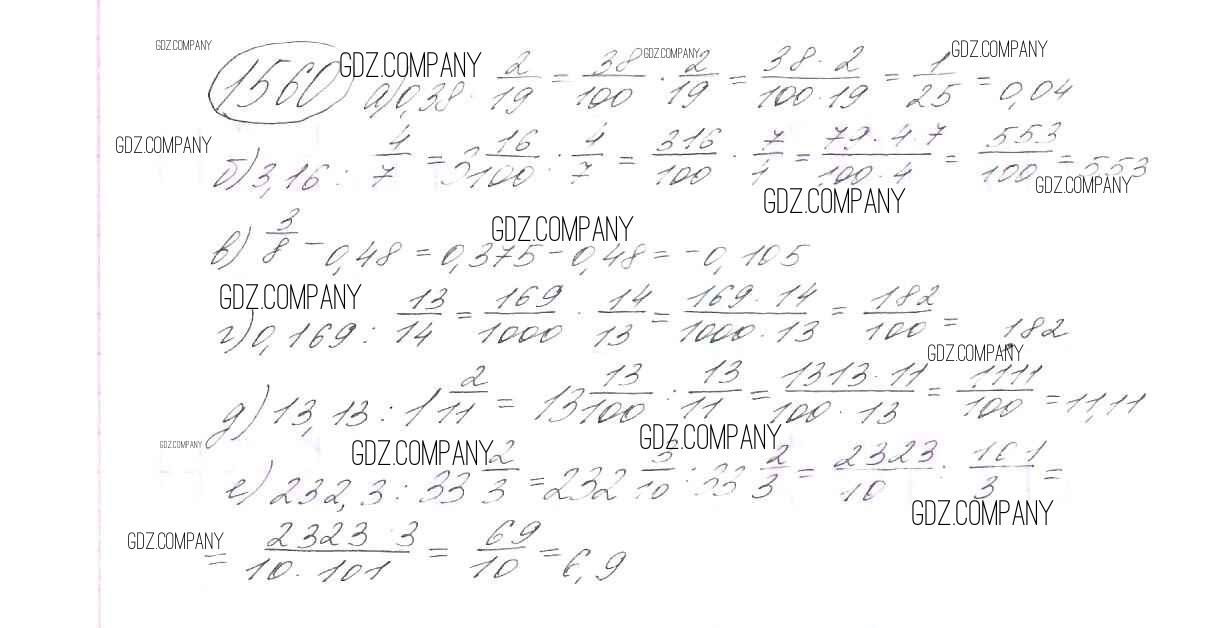 GDZ.COMPANY GDZ.COMPANY GDZ.COMPANY GDZ.COMPANY
1560 а) 0,38 · 2/19 = 38/100 · 2/19 = 38 · 2/100 · 19 = 1/25 = 0,04
GDZ.COMPANY
б) 3,16 : 4/7 = 3 16/100 : 4/7 = 316/100 · 7/4 = 79 · 4 · 7/100 · 4 = 553/100 = 5,53
GDZ.COMPANY
GDZ.COMPANY
GDZ.COMPANY
в) 3/8 - 0,48 = 0,375 - 0,48 = -0,105
GDZ.COMPANY
г) 0,169 : 13/14 = 169/1000 · 14/13 = 169 · 14/1000 · 13 = 182/100 = ,182
GDZ.COMPANY
д) 13,13 : 1 2/11 = 13 13/100 : 13/11 = 1313 · 11/100 · 13 = 1111/100 = 11,11
GDZ.COMPANY GDZ.COMPANY GDZ.COMPANY
е) 232,3 : 33 2/3 = 232 3/10 : 33 2/3 = 2323/10 · 101/3 =
GDZ.COMPANY
GDZ.COMPANY
= 2323 · 3/10 · 101 = 69/10 = 6,9